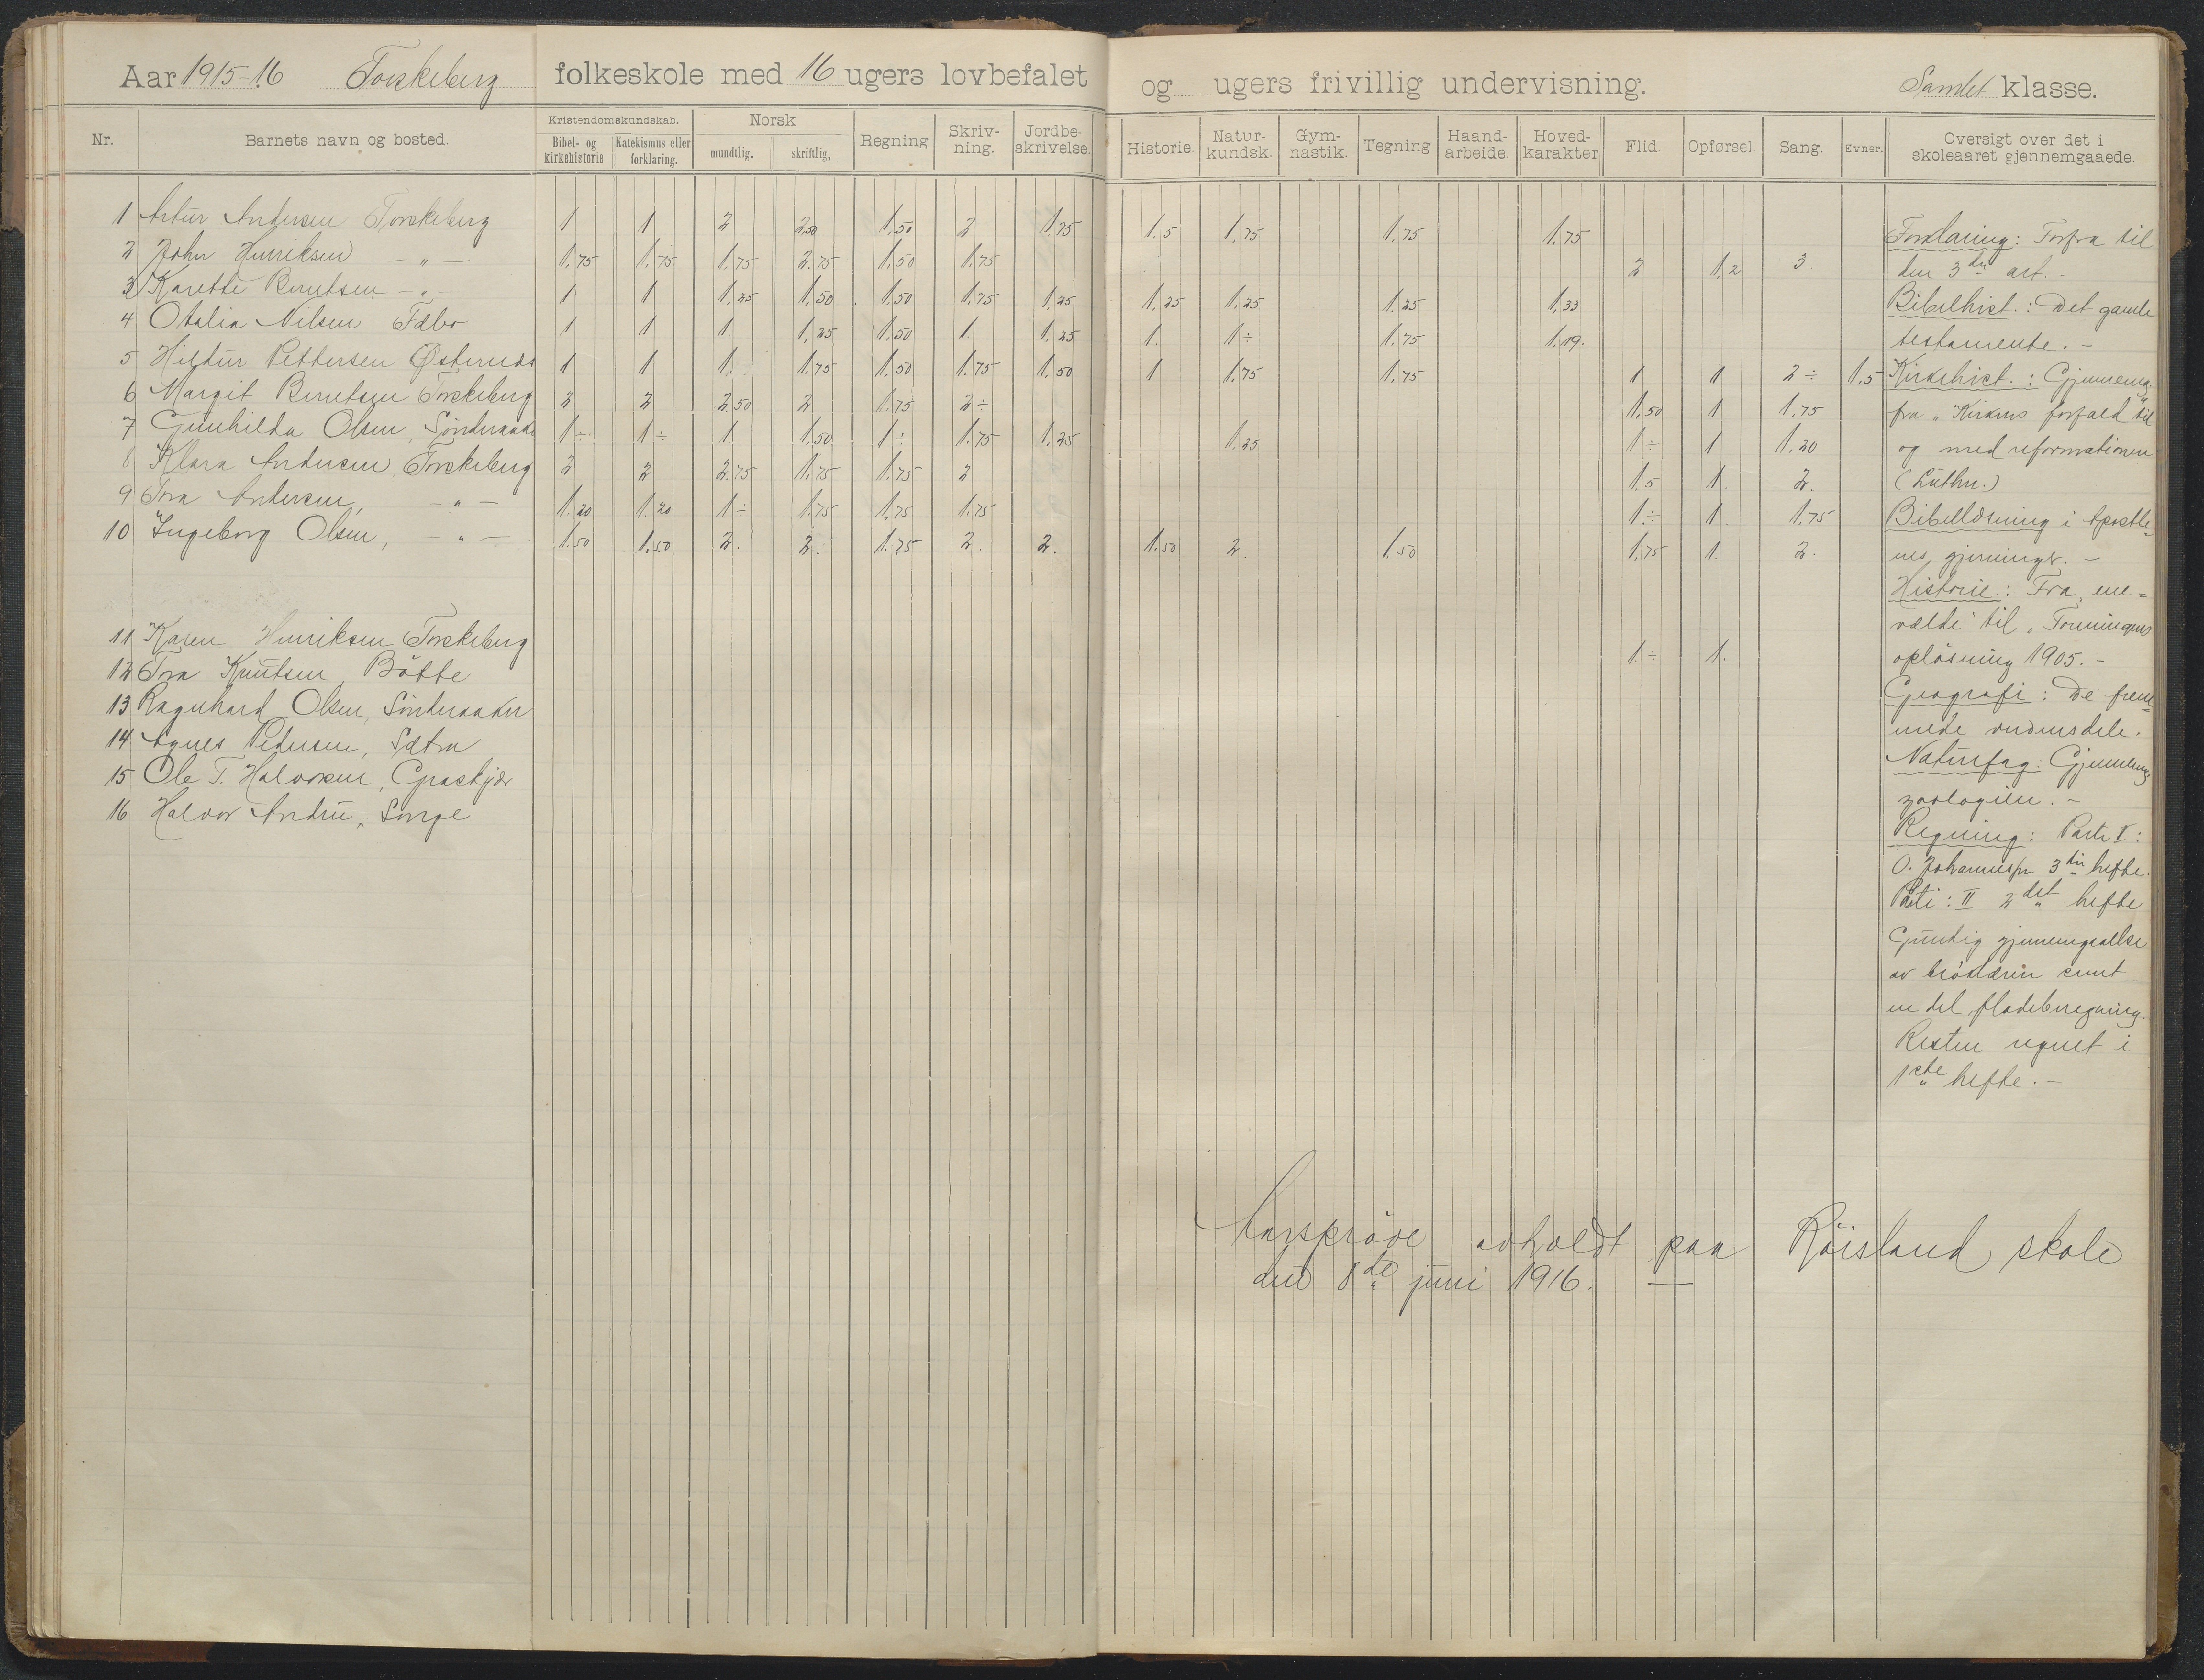 Aar 1915-16 Torskeberg folkeskole med 16 ugers lovbefalet og ugers frivillig undervisning. Samlet klasse.
Nr. Barnets navn og bosted. Kristendomskundskab. Bibel- og kirkehistorie Katekismus eller forklaring. Norsk mundtlig. skriftlig, Regning Skriv-ning. Jordbe-skrivelse. Historie. Natur-kundsk. Gym-nastik. Tegning Haand-arbeide. Hoved-karakter Flid. Opførsel Sang. Evner. Oversigt over det i skoleaaret gjennemgaaede.
1 Artur Andersen Torskeberg 1 1 2 2.50 1.50 2 1.75 1.5 1.75 1.75 1.75
2 John Henriksen — " — 1.75 1.75 1.75 2.75 1.50 1.75 2 1,2 3.
3 Karette Berntsen — " — 1 1 1.25 1.50 1.50 1.75 1.25 1.25 1.25 1.25 1.33
4 Otalia Nilsen 1 1 1. 1.25 1.50 1. 1.25 1. 1÷ 1.75 1.19.
5 Hildur Pettersen 1 1 1. 1.75 1.50 1.75 1.50 1 1.75 1.75 1 1 2÷ 1.5
6 Margit Berntsen Torskeberg 2 2 2.50 2 1.75 2÷ 1.50 1 1.75
7 Gunhilda Olsen, 1÷ 1÷ 1 1.50 1÷ 1.75 1.25 1.25 1÷ 1 1.20
8 Klara Andersen, Torskeberg 2 2 2.75 1.75 1.75 2 1.5 1. 2.
9 Tora Andersen, — " — 1.20 1.20 1÷ 1.75 1.75 1.75 1.÷ 1. 1.75
10 Ingeborg Olsen, — " — 1.50 1.50 2. 2. 1.75 2. 2. 1.50 2. 1.50 1.75 1. 2.
11 Karen Henriksen Torskeberg 1.÷ 1.
12 Tora Knutsen, Bötte
13 Ragnhard Olsen,
14 Agnes Pedersen, Sætra
15 Ole T. Halvorsen,
16 Halvor
Forklaring: Forfra til
den 3die art. -
Bibelhist.: Det gamle
testamente. -
Kirkehist.: Gjennemg.
fra „Kirkens forfald" til
og med reformationen
(Luther.)
Bibellæsning i Apostle-
nes gjerninger. -
Historie: Fra ene-
vælde til „Foreningens
opløsning 1905. -
Geografi: De frem-
mede verdensdele.
Naturfag: Gjennemg.
zoologien. -
Regning: Parti I:
O. Johannesen 3die hefte.
Parti: II 2det hefte
Grundig gjennemgaaelse
av brøklæren samt
en del fladeberegning.
Resten regnet i
1ste hefte. -
Aarsprøve avholdt paa Røisland skole
den 8de juni 1916. —